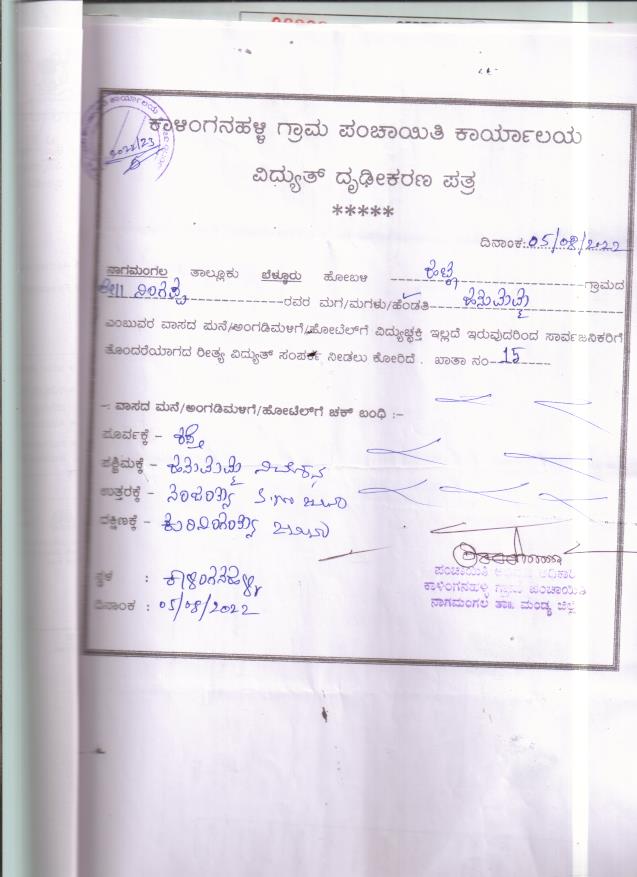 ಕಾಳಿಂಗನಹಳ್ಳಿ ಗ್ರಾಮ ಪಂಚಾಯಿತಿ ಕಾರ್ಯಾಲಯ
2022/23
ವಿದ್ಯುತ್ ದೃಢೀಕರಣ ಪತ್ರ
*****
ದಿನಾಂಕ:05/08/2022
ನಾಗಮಂಗಲ ತಾಲ್ಲೂಕು ಬೆಳ್ಳೂರು ಹೋಬಳಿ ಗ್ರಾಮದ
ನಿಂಗಪ್ಪ ರವರ ಮಗ/ಮಗಳು/ಹೆಂಡತಿ ಹನುಮಮ್ಮ
ಎಂಬುವರ ವಾಸದ ಮನೆ/ಅಂಗಡಿಮಳಿಗೆ/ಹೋಟೆಲ್‌ಗೆ ವಿದ್ಯುಚ್ಛಕ್ತಿ ಇಲ್ಲದೆ ಇರುವುದರಿಂದ ಸಾರ್ವಜನಿಕರಿಗೆ
ತೊಂದರೆಯಾಗದ ರೀತ್ಯ ವಿದ್ಯುತ್ ಸಂಪರ್ಕ ನೀಡಲು ಕೋರಿದೆ . ಖಾತಾ ನಂ 15
-: ವಾಸದ ಮನೆ/ಅಂಗಡಿಮಳಿಗೆ/ಹೋಟೆಲ್‌ಗೆ ಚಕ್ ಬಂಧಿ :-
ಪೂರ್ವಕ್ಕೆ - ರಸ್ತೆ
ಪಶ್ಚಿಮಕ್ಕೆ - ಹನುಮಮ್ಮ ನಿವೇಶನ
ಉತ್ತರಕ್ಕೆ -
ದಕ್ಷಿಣಕ್ಕೆ -
ಸ್ಥಳ : ಕಾಳಿಂಗನಹಳ್ಳಿ
ದಿನಾಂಕ : 05/08/2022
ಪಂಚಾಯಿತಿ ಅಧಿಕಾರಿ
ಕಾಳಿಂಗನಹಳ್ಳಿ ಗ್ರಾಮ ಪಂಚಾಯಿತಿ
ನಾಗಮಂಗಲ ತಾ॥ ಮಂಡ್ಯ ಜಿಲ್ಲೆ